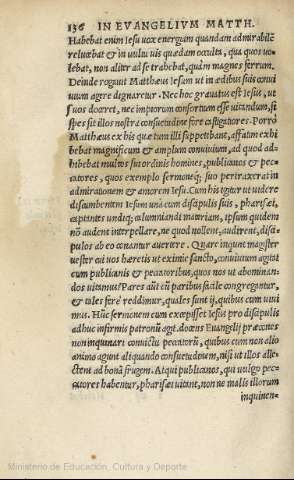 136 IN EVANGELIVM MATTH.
Habebat enim Iesu uox energiam quandam admirabilē:
relucebat & in uultu uis quædam occulta, qua quos uo-
lebat, non aliter ad se trahebat, quàm magnes ferrum.
Deinde rogauit Matthæus Iesum ut in ædibus suis conui
uium agere dignaretur. Nec hoc grauatus est Iesus, ut
suos doceret, nec impiorum consortium esse uitandum, si
spes sit illos nostra consuetudine fore castigatiores. Porrò
Matthæus ex his quæ tum illi suppetebant, affatim exhi
bebat magnificum & amplum conuiuium, ad quod ad-
hibebat multos sui ordinis homines, publicanos & pec-
catores, quos exemplo sermoneq́; suo pertraxerat in
admirationem & amorem Iesu. Cum his igitur ut uidere
discumbentem Iesum unà cum discipulis suis, pharisæi,
captantes undiq; calumniandi materiam, ipsum quidem
nō audent interpellare, ne quod nollent, audirent, disci-
pulos ab eo conantur auertere. Quare inquiunt magister
uester cui uos hæretis ut eximiè sancto, conuiuium agitat
cum publicanis & peccatoribus, quos nos ut abominan-
dos uitamus? Pares autē cū paribus facilè congregantur,
& tales ferè reddimur, quales sunt ij, quibus cum uiui
mus. Hūc sermonem cum excepisset Iesus pro discipulis
adhuc infirmis patronū agit. docens Euangelij præcones
non inquinari conuictu peccatorū, quibus cum non alio
animo agunt aliquando consuetudinem, nisi ut illos alle-
ctent ad bonā frugem. Atqui publicanos, qui uulgo pec-
catores habentur, pharisæi uitant, non ne malis illorum
inquinen-
Ministerio de Educación, Cultura y Deporte